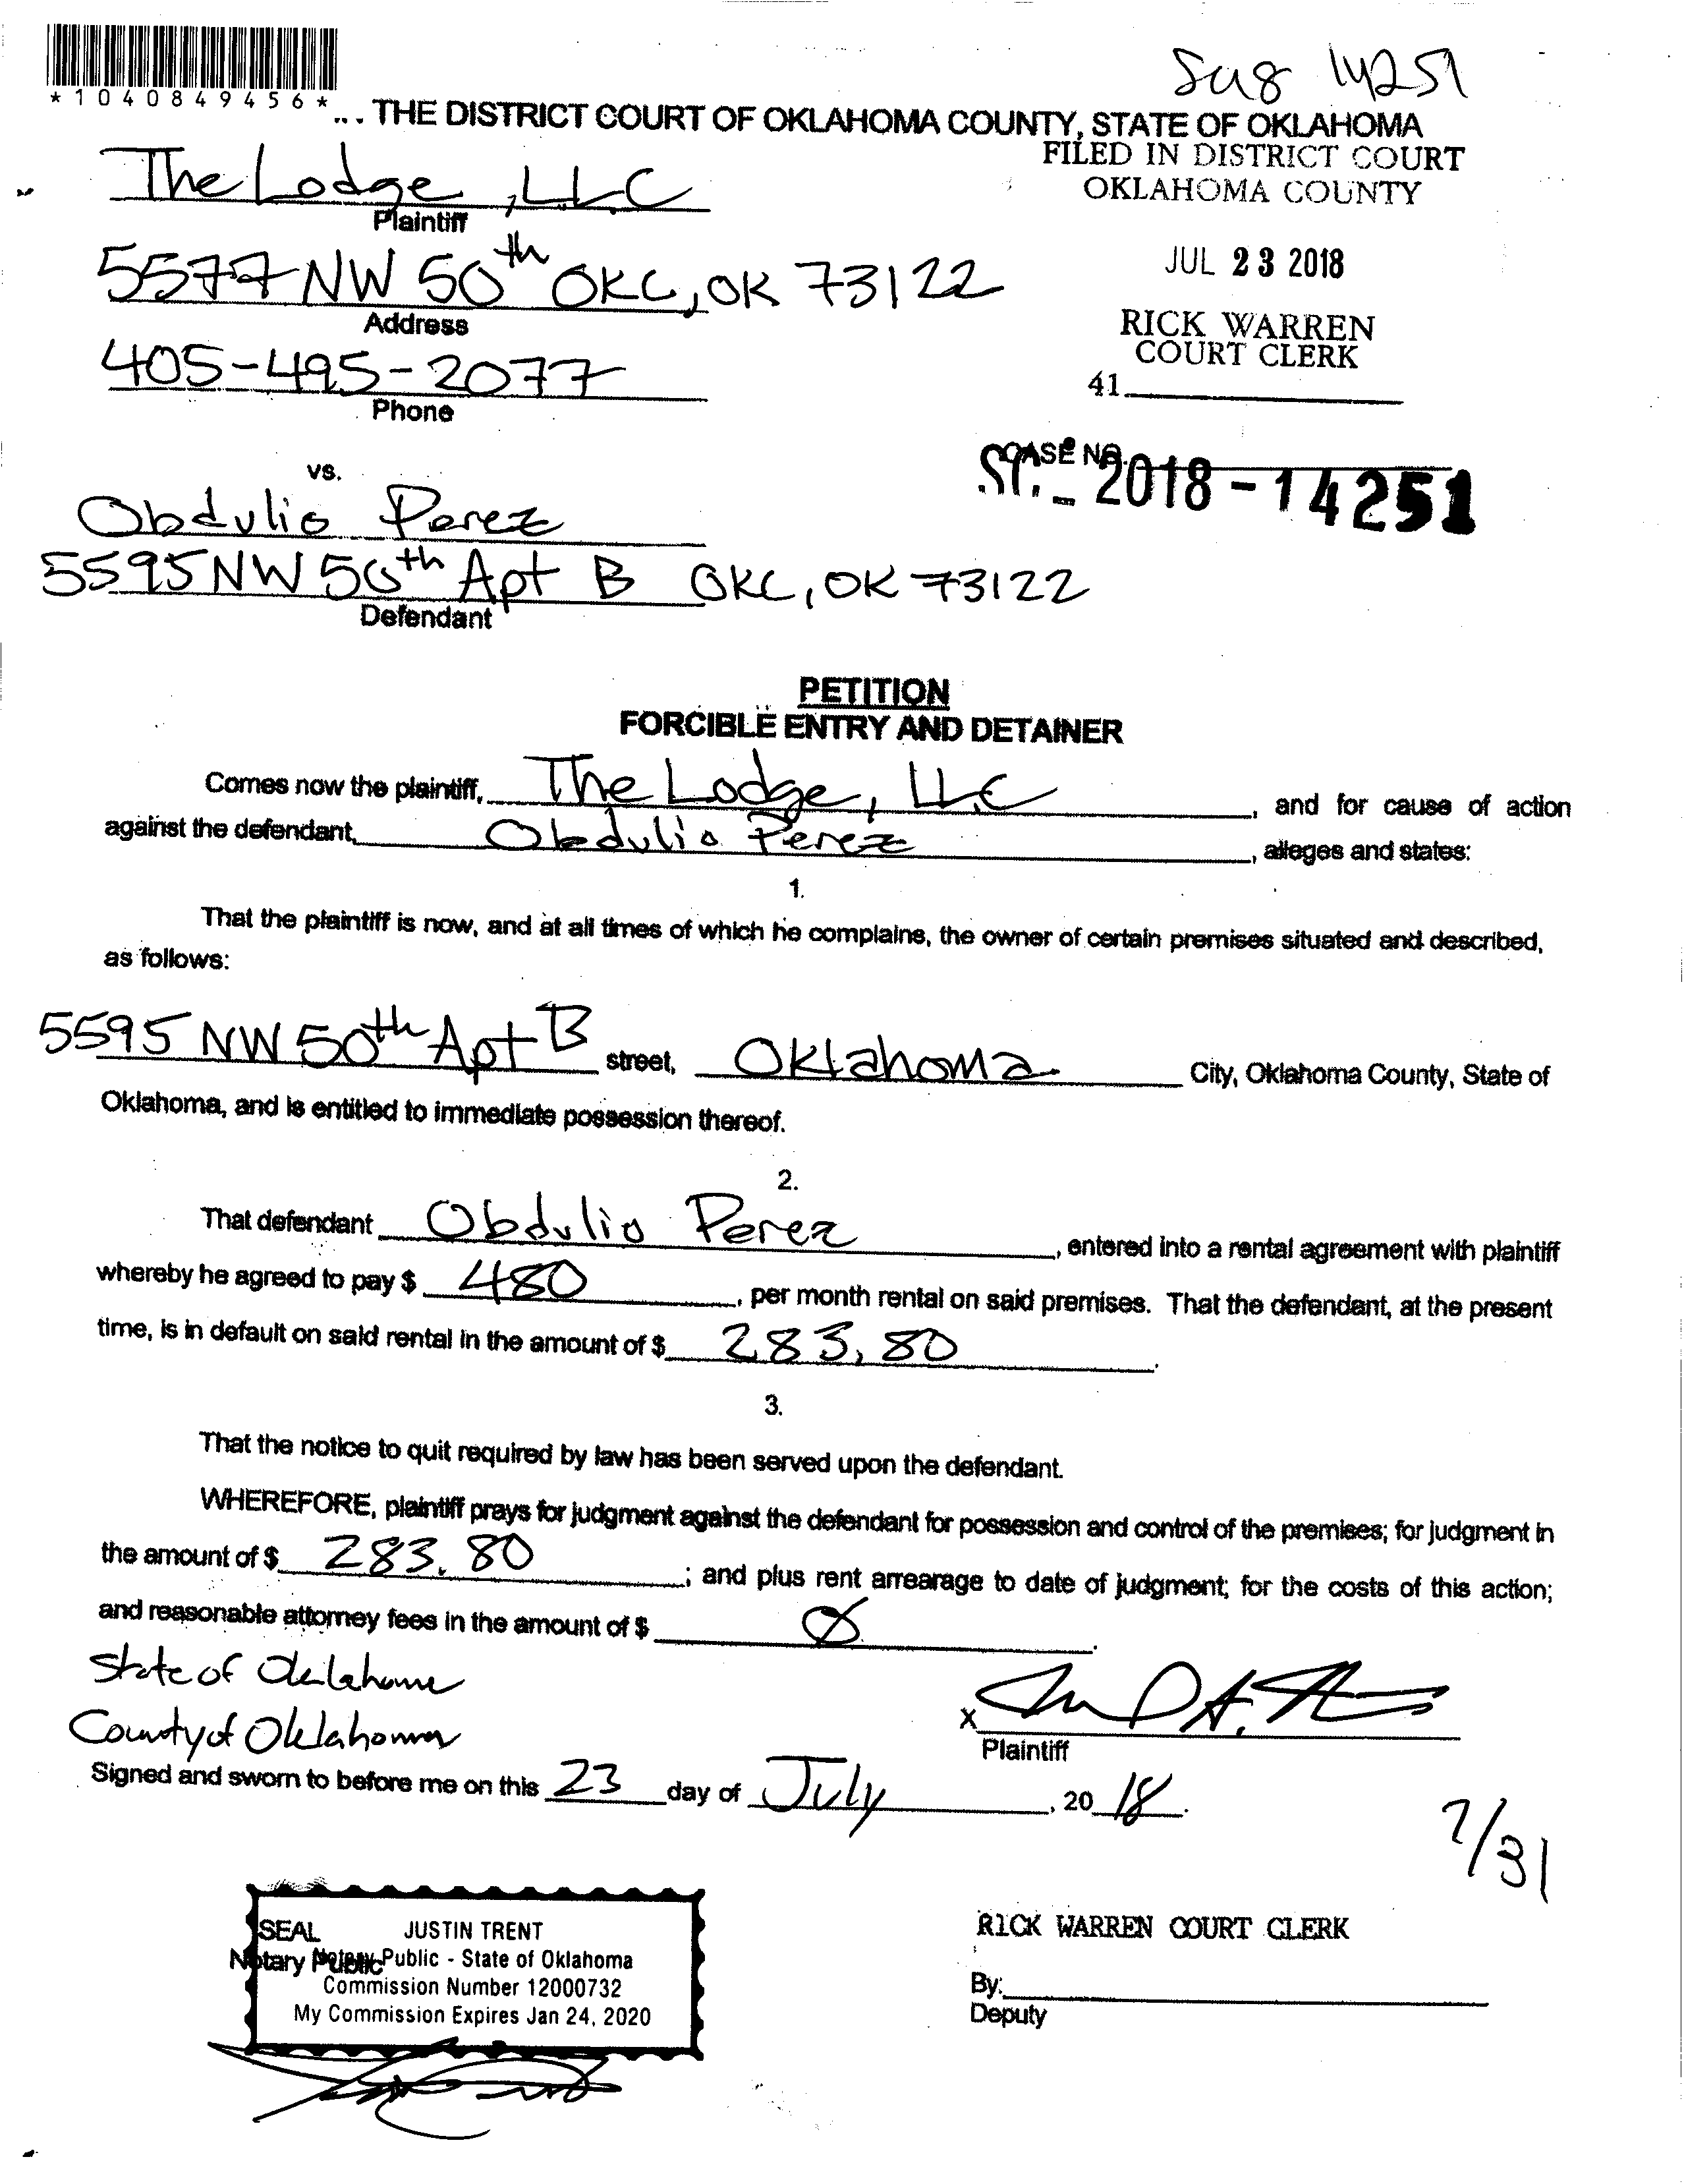 *1040849456*
THE DISTRICT COURT OF OKLAHOMA COUNTY, STATE OF OKLAHOMA
14251
FILED IN DISTRICT COURT
OKLAHOMA COUNTY
JUL 23 2018
RICK WARREN
COURT CLERK
41
The Lodge, LLC
Plaintiff
5577 NW 50th OKC, OK 73122
Address
405-495-2077
Phone
vs.
CASE NO.
SC - 2018 - 14251
Obdulio Perez
5595 NW 50th Apt B OKC, OK 73122
Defendant
PETITION
FORCIBLE ENTRY AND DETAINER
Comes now the plaintiff, The Lodge, LLC, and for cause of action
against the defendant, Obdulio Perez, alleges and states:
1.
That the plaintiff is now, and at all times of which he complains, the owner of certain premises situated and described,
as follows:
5595 NW 50th Apt B street, Oklahoma City, Oklahoma County, State of
Oklahoma, and is entitled to immediate possession thereof.
2.
That defendant Obdulio Perez, entered into a rental agreement with plaintiff
whereby he agreed to pay $ 480, per month rental on said premises. That the defendant, at the present
time, is in default on said rental in the amount of $ 283.80.
3.
That the notice to quit required by law has been served upon the defendant.
WHEREFORE, plaintiff prays for judgment against the defendant for possession and control of the premises; for judgment in
the amount of $ 283.80; and plus rent arrearage to date of judgment; for the costs of this action;
and reasonable attorney fees in the amount of $ Ø.
State of Oklahoma
County of Oklahoma
X
Plaintiff
Signed and sworn to before me on this 23 day of July, 20 18.
7/31
SEAL JUSTIN TRENT
Notary Public Notary Public - State of Oklahoma
Commission Number 12000732
My Commission Expires Jan 24, 2020
RICK WARREN COURT CLERK
By:
Deputy